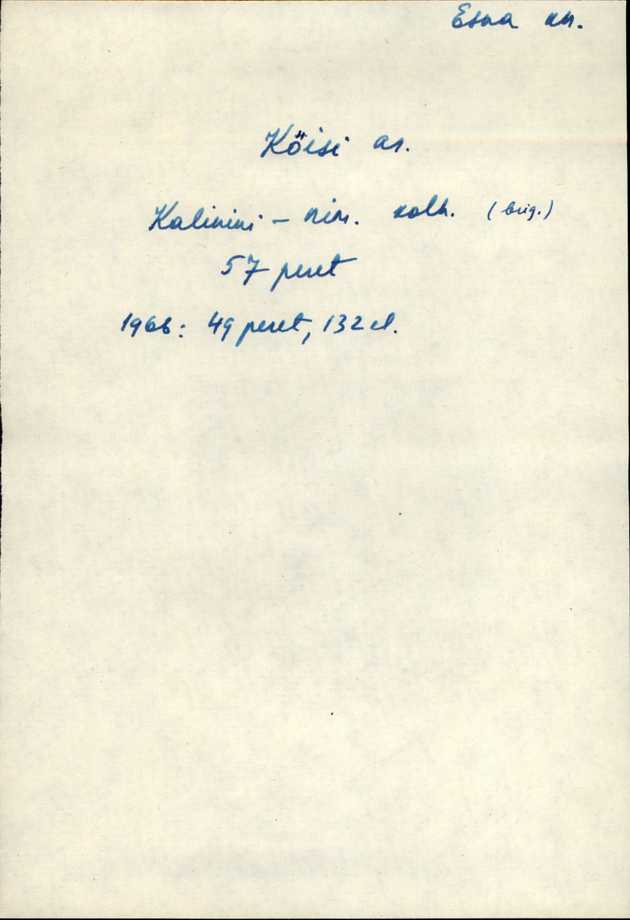 Esna kn.
Kõisi as.
Kalinini - nim. kolh. (brig.)
57 peret
1966: 49 peret, 132 el.